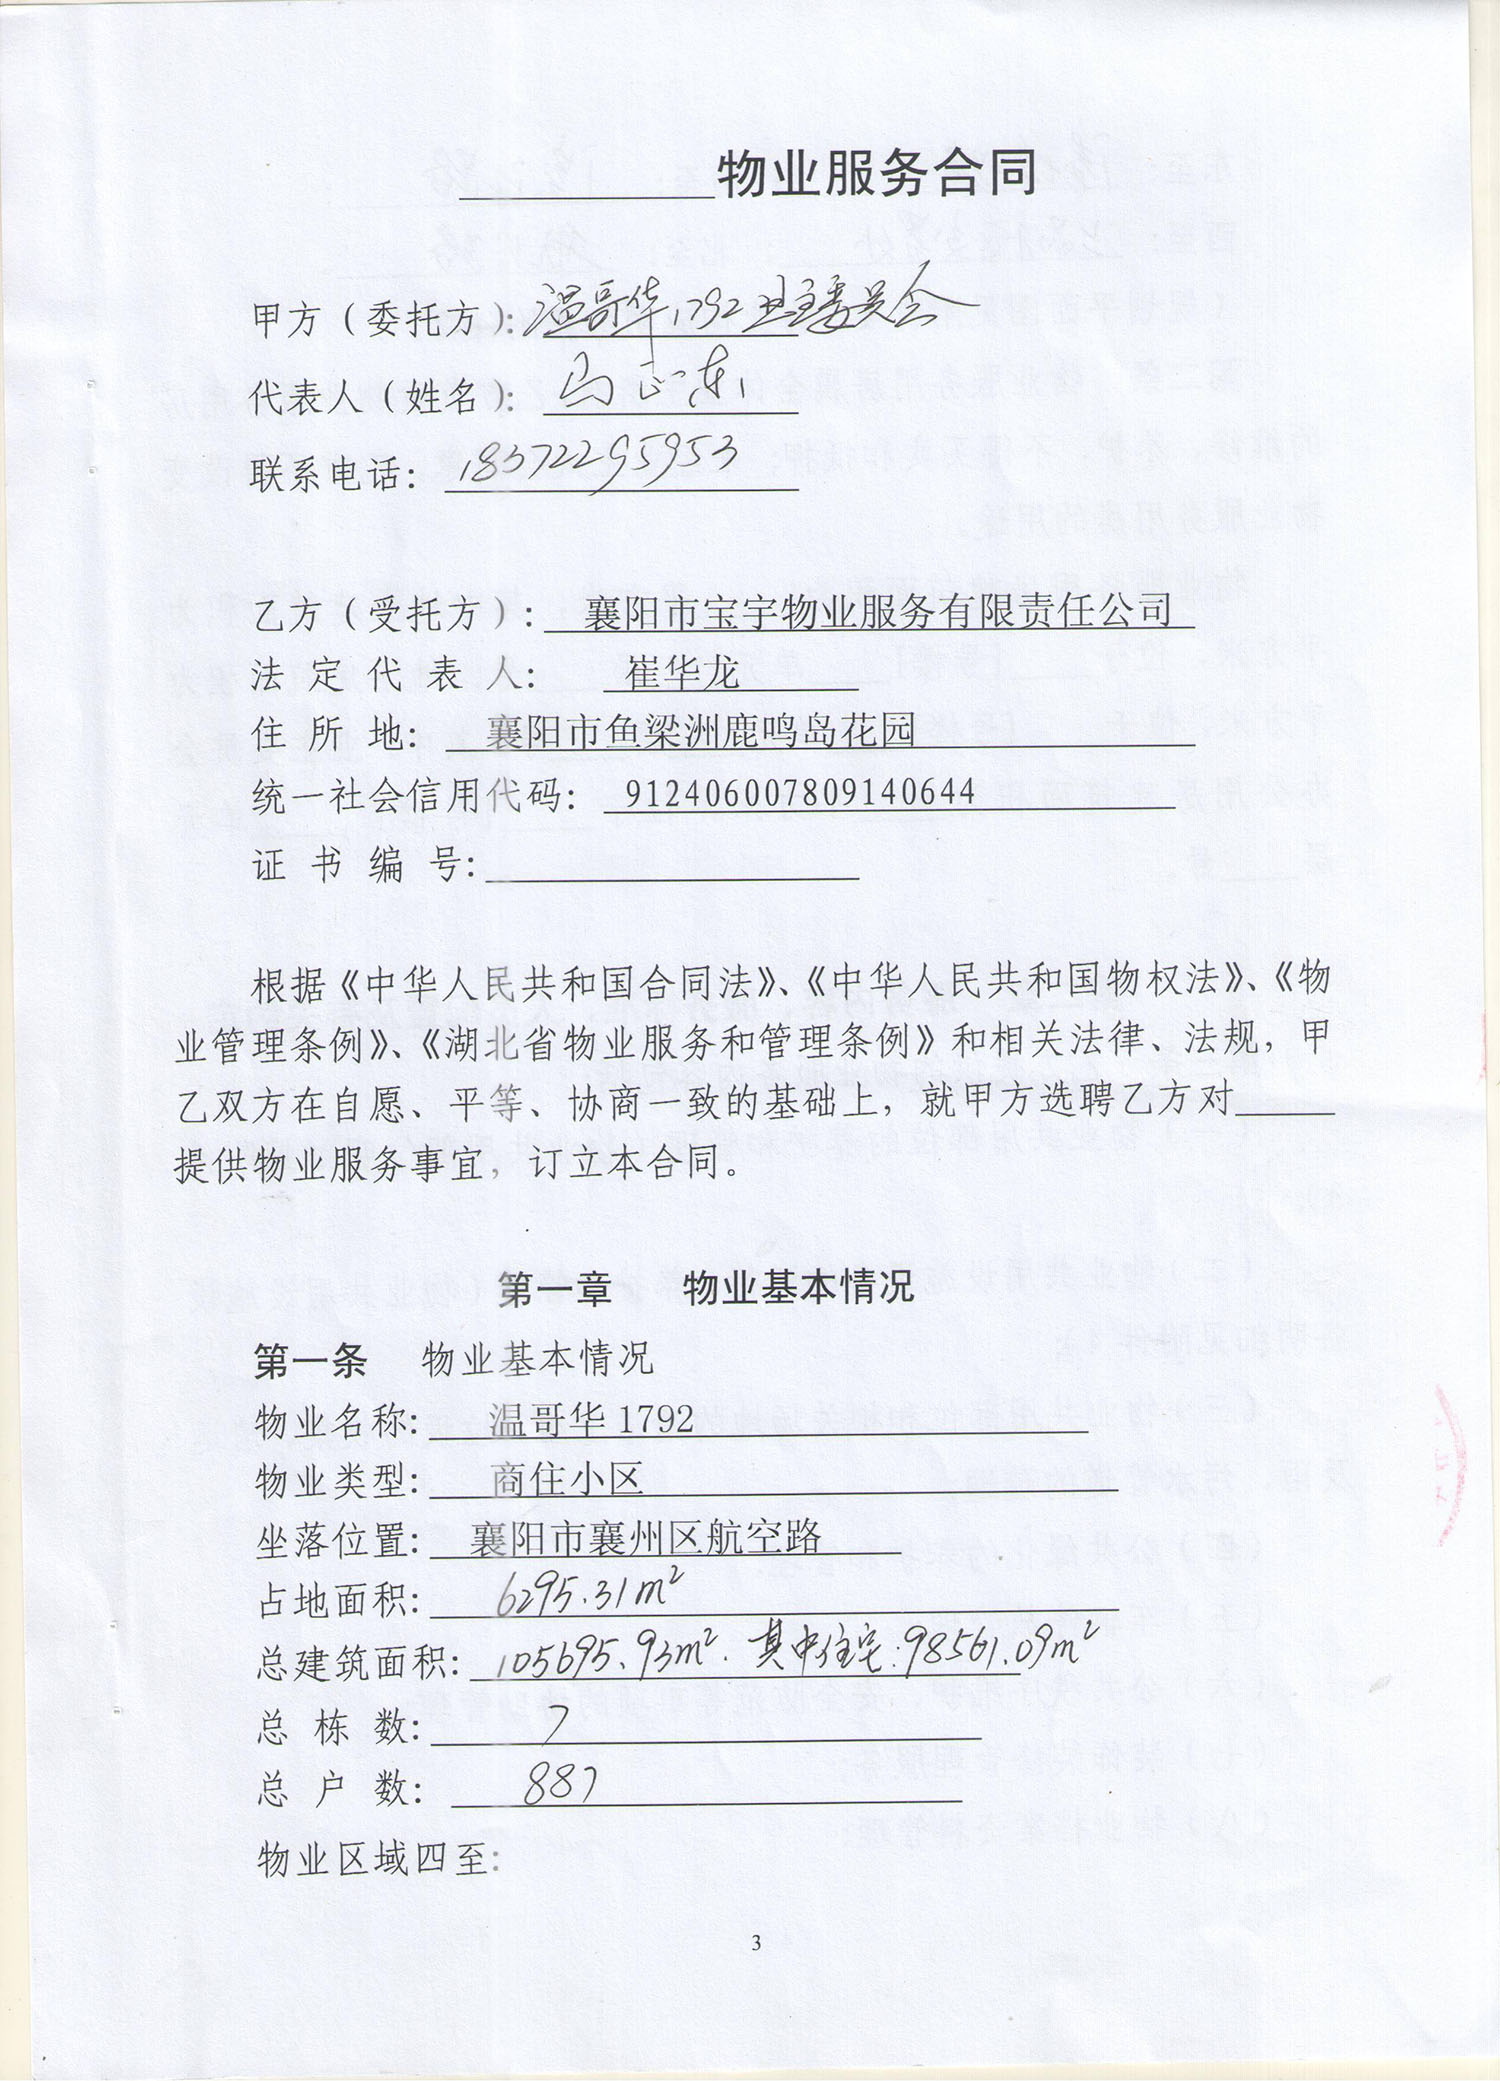 物业服务合同
甲方（委托方）：温哥华1792业主委员会
代表人（姓名）：马正东
联系电话：18372295953
乙方（受托方）：襄阳市宝宇物业服务有限责任公司
法定代表人：崔华龙
住所地：襄阳市鱼梁洲鹿鸣岛花园
统一社会信用代码：912406007809140644
证书编号：
根据《中华人民共和国合同法》、《中华人民共和国物权法》、《物
业管理条例》、《湖北省物业服务和管理条例》和相关法律、法规，甲
乙双方在自愿、平等、协商一致的基础上，就甲方选聘乙方对
提供物业服务事宜，订立本合同。
第一章 物业基本情况
第一条 物业基本情况
物业名称：温哥华1792
物业类型：商住小区
坐落位置：襄阳市襄州区航空路
占地面积：6295.31m²
总建筑面积：105695.93m². 其中住宅：98561.09m²
总栋数：7
总户数：887
物业区域四至：
3